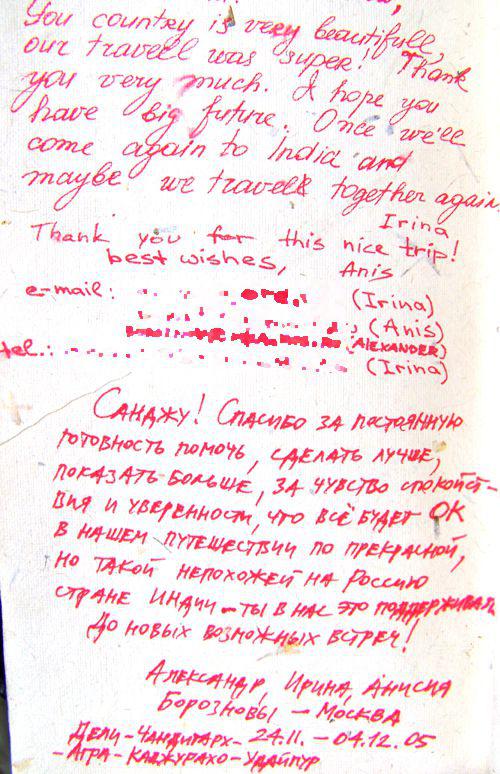 You country is very beautifull,
our travell was super! Thank
you very much. I hope you
have big future. Once we'll
come again to India and
maybe we travell together again.
Irina
Thank you for this nice trip!
best wishes, Anis
e-mail: (Irina)
(Anis)
(ALEXANDER)
tel.: (Irina)
Санджу! Спасибо за постоянную
готовность помочь, сделать лучше,
показать больше, за чувство спокойст-
вия и уверенности, что всё будет ОК
в нашем путешествии по прекрасной,
но такой непохожей на Россию
стране Индии – ты в нас это поддерживал
До новых возможных встреч!
Александр, Ирина, Анисия
Борозновы – Москва
Дели – Чандигарх – 24.11. – 04.12.05
– Агра – Каджурахо – Удайпур